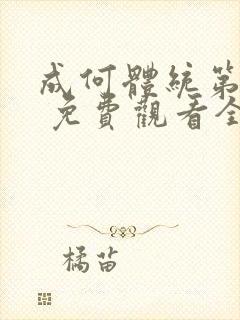 成何體統第
免費觀看全
橘苗